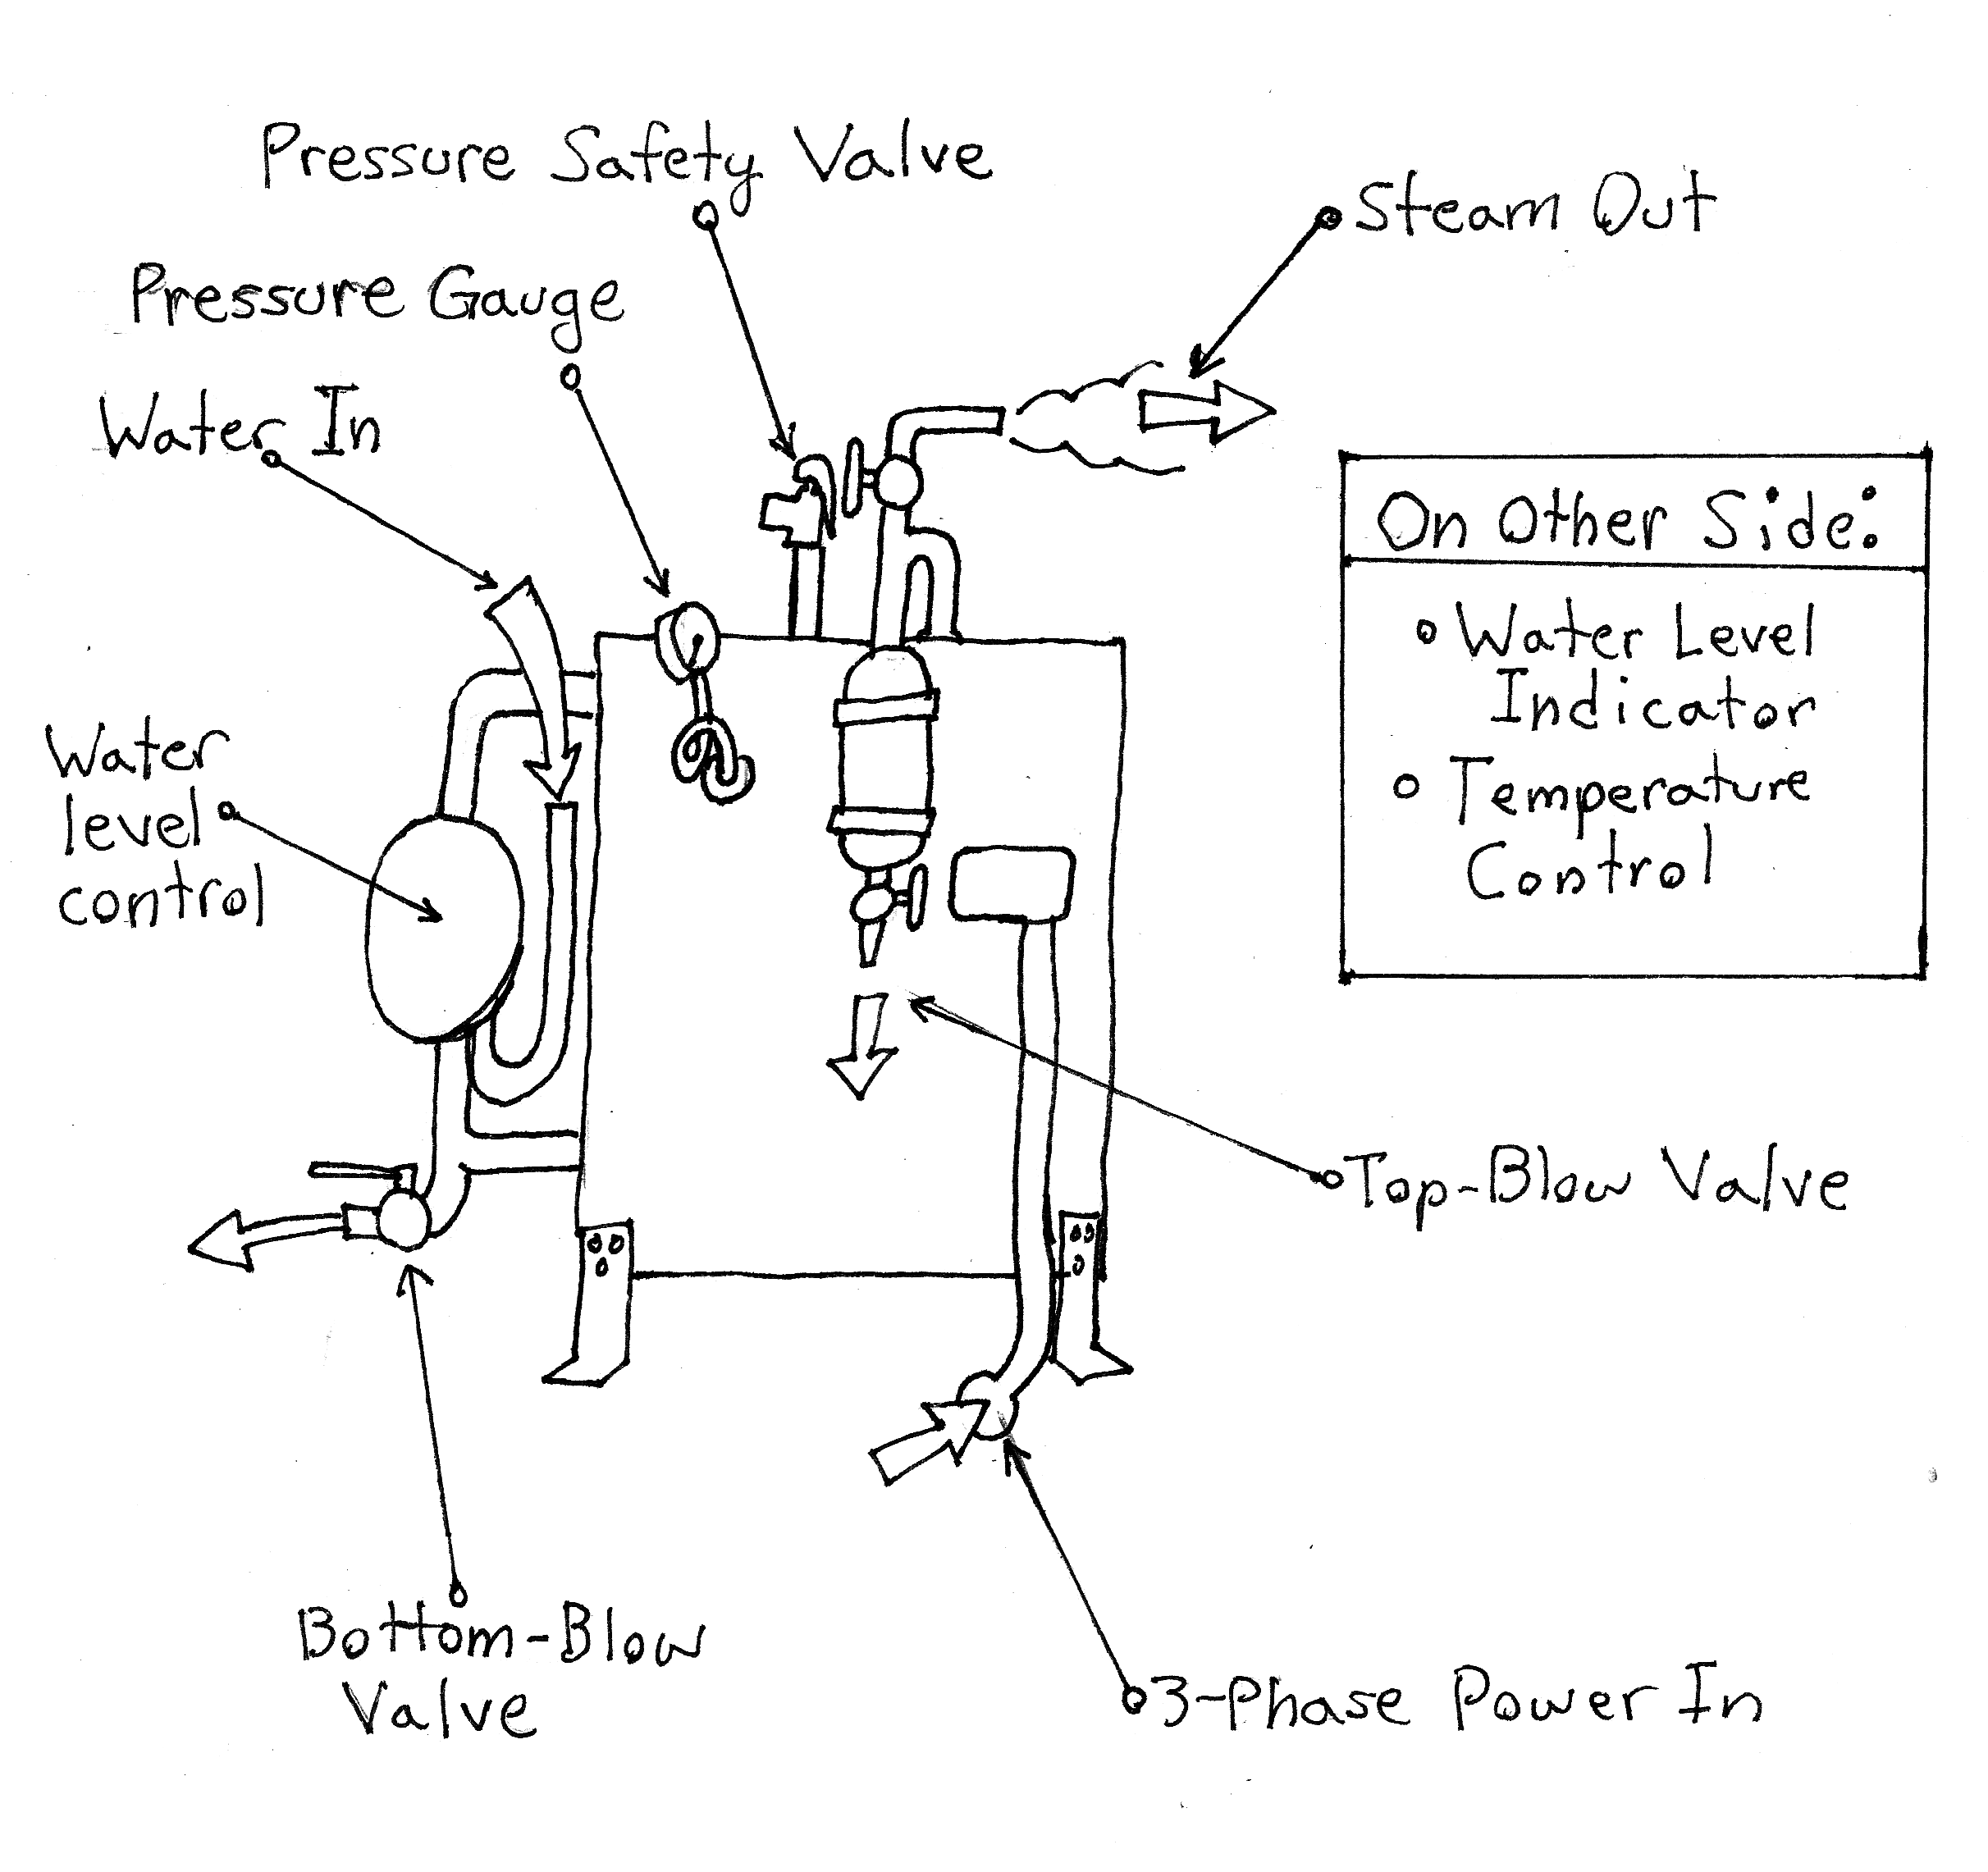 Pressure Safety Valve
Steam Out
Pressure Gauge
Water In
On Other Side:
Water Level
Indicator
Temperature
Control
Water
level
control
Top-Blow Valve
Bottom-Blow
Valve
3-Phase Power In